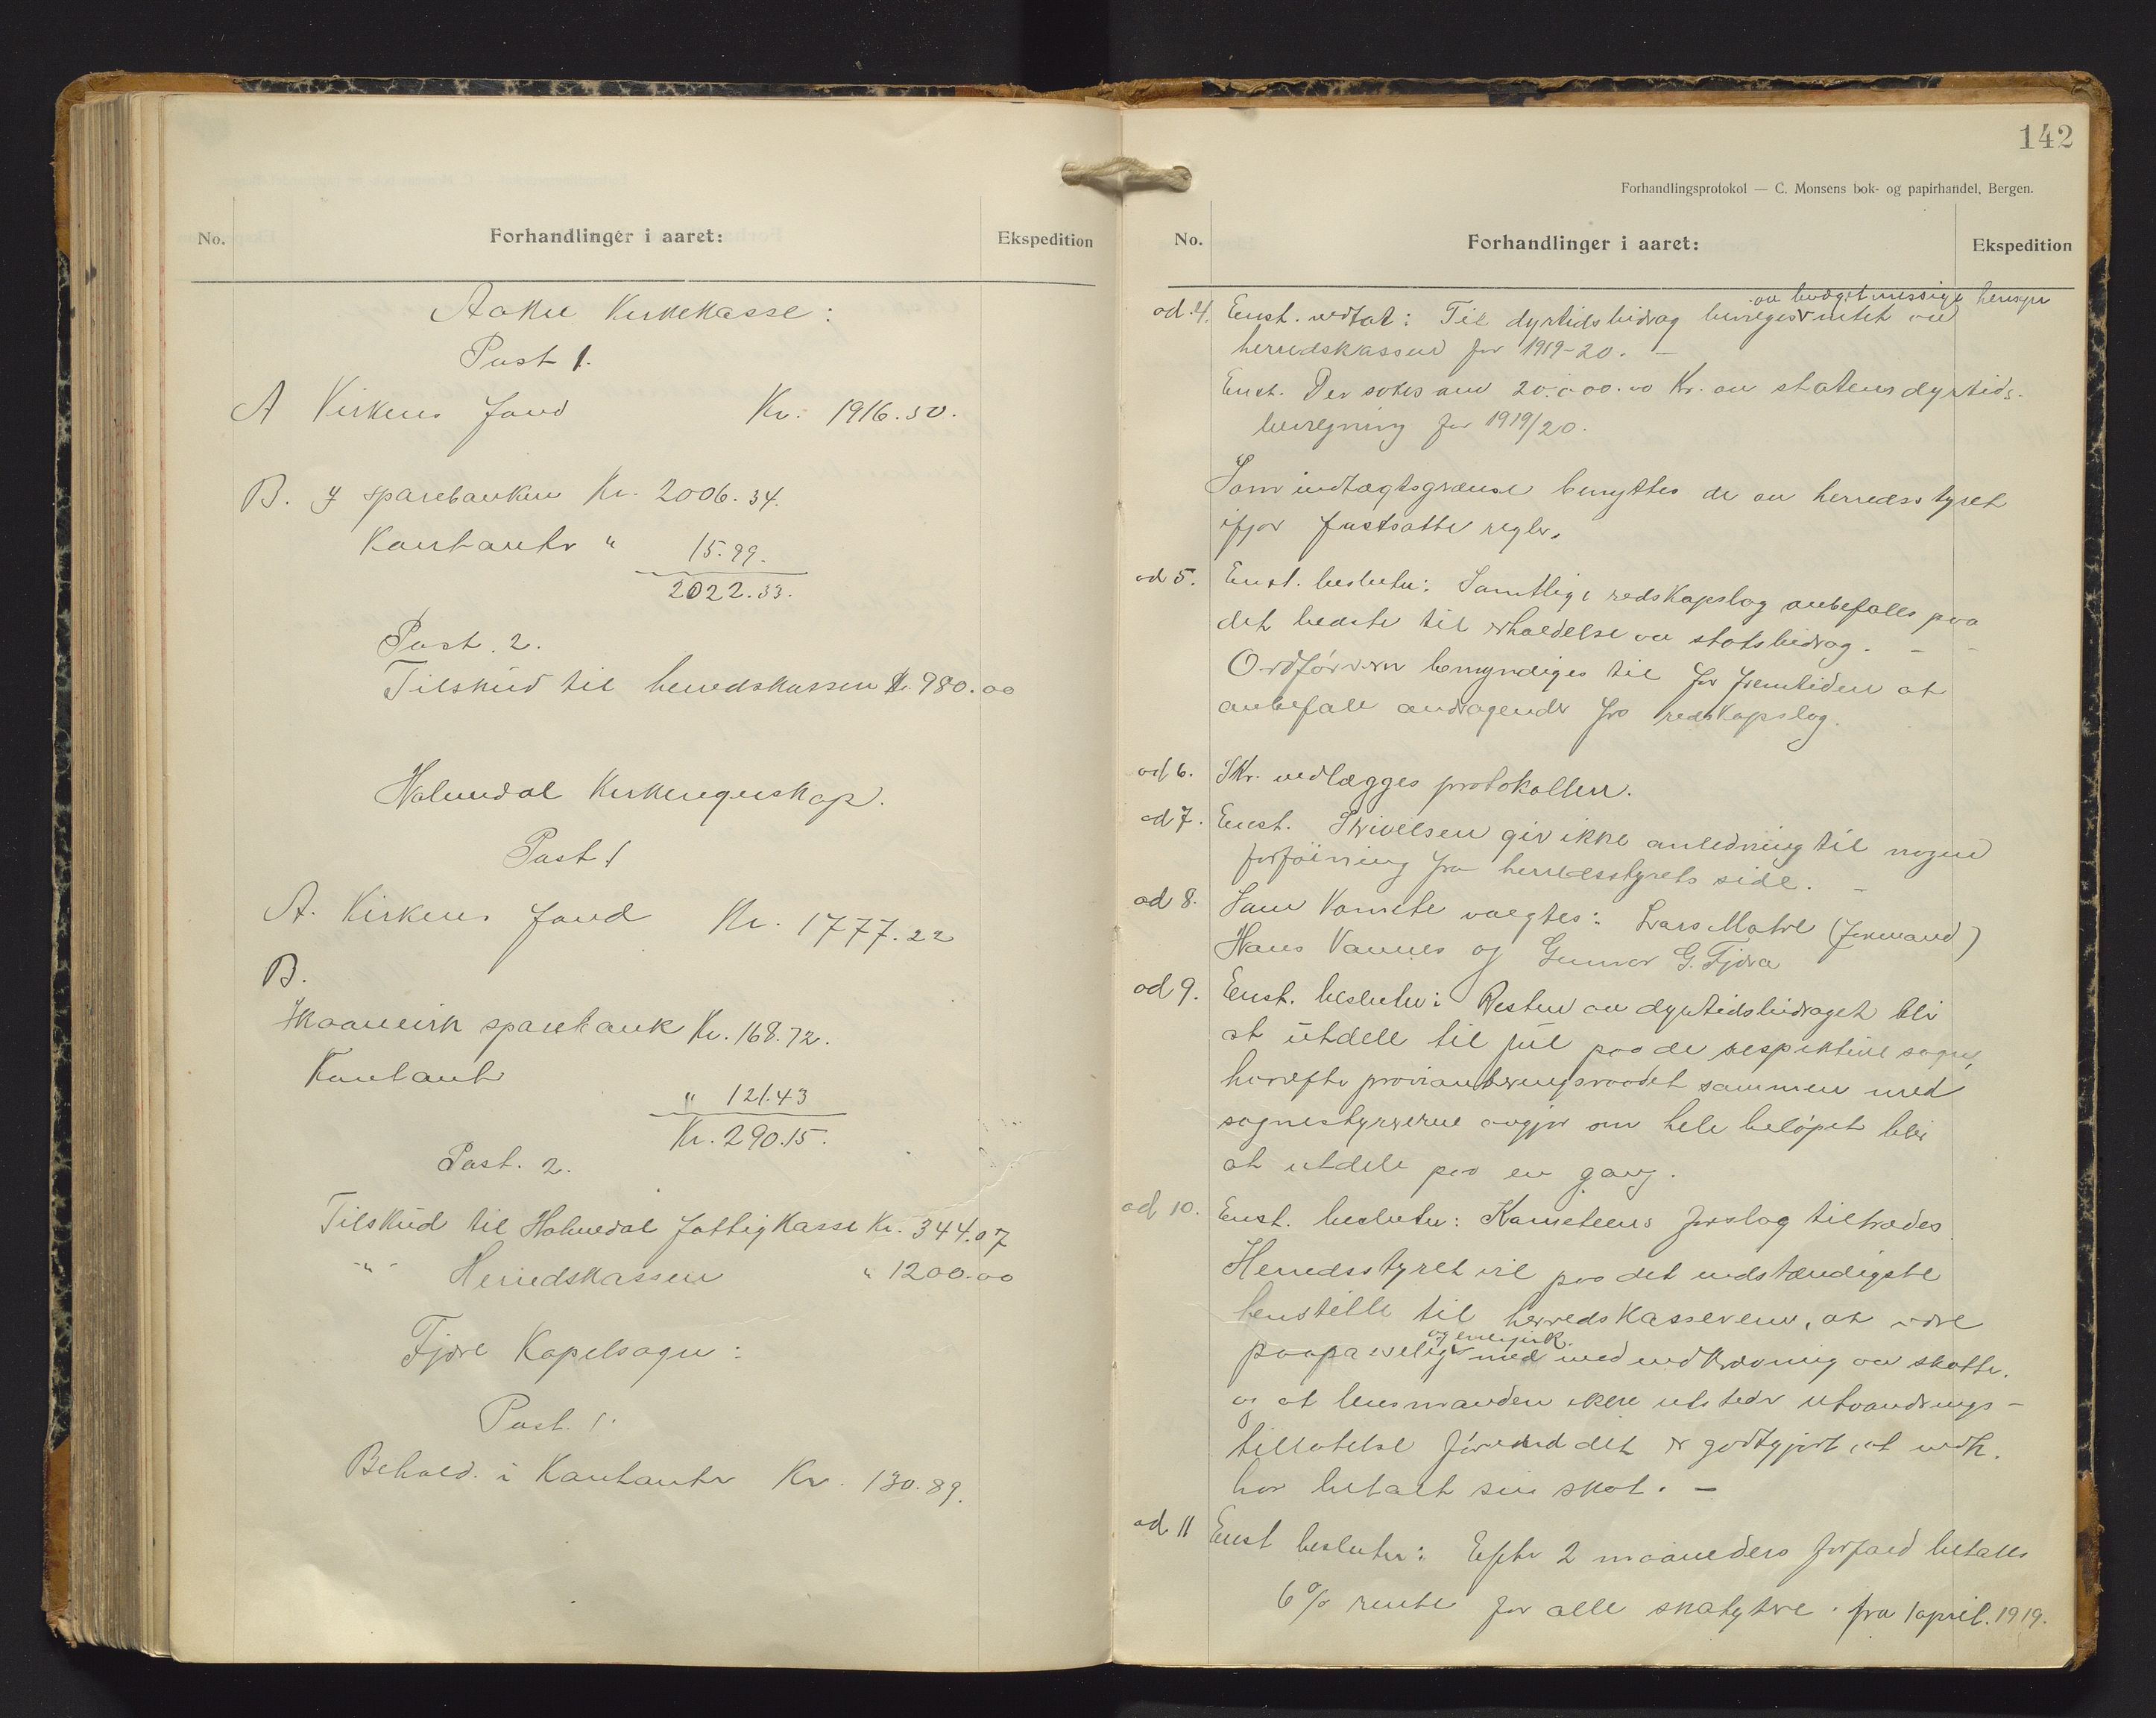 No.
Forhandlinger i aaret:
Ekspedition
Aakre Kirkekasse:
Post 1.
A Kirkens fond Kr. 1916.50.
B. I sparebanken Kr. 2006.34.
Kontanter " 15.99.
2022.33.
Post. 2.
Tilskud til herredskassen Kr. 980.00
Holmedal Kirkeregnskap.
Post 1
A. Kirkens fond Kr. 1777.22
B.
Skaanevik sparebank Kr. 168.72.
Kontant
" 121.43
Kr. 290.15.
Post. 2.
Tilskud til Holmedal fattigkasse Kr. 344.07
-"- Herredskassen " 1200.00
Fjære Kapelsogn:
Post. 1.
Behold. i Kontanter Kr. 130.89.
142
Forhandlingsprotokol — C. Monsens bok- og papirhandel, Bergen.
No.
Forhandlinger i aaret:
Ekspedition
av budgetmessige hensyn
ad. 4. Enst. vedtat: Til dyrtidsbidrag beviges intet av
herredskassen for 1919-20. –
Enst. Der søkes om 20.000.00 Kr. av statens dyrtids-
bevilgning for 1919/20.
Som indtægtsgrænse benyttes de av herredsstyret
ifjor fastsatte regler.
ad 5. Enst. beslutn: Samtlige redskapslag anbefales paa
det bedste til erholdelse av statsbidrag. – –
Ordføreren bemyndiges til for fremtiden at
anbefale andragender fra redskapslag.
ad 6. Skr. vedlægges protokollen.
ad 7. Enst. Skrivelsen gir ikke anledning til nogen
forføining fra herredsstyrets side. –
ad 8. Som Komite valgtes: Lars Matre (formand)
Hans Vannes og Gunnar G. Fjæra
ad 9. Enst. beslutn: Resten av dyrtidsbidraget blir
at utdele til jul paa de respektive sogn,
hvorefter provianteringsraadet sammen med
sognestyrerne avgjør om hele beløpet blir
at utdele paa en gang.
ad 10. Enst. beslutn: Komiteens forslag tiltrædes
Herredsstyret vil paa det indstændigste
henstille til herredskassereren, at være
og energisk
paapasselig med med indkrævning av skatter,
og at lensmanden ikke utsteder utvandrings-
tillatelse førend det er godtgjort, at vedk.
har betalt sin skat. –
ad 11 Enst beslutn: Efter 2 maaneders forfald betales
6% rente for alle skatytere. fra 1 april. 1919.